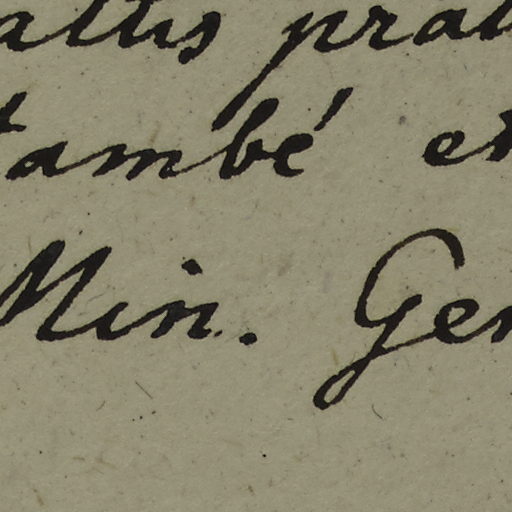 altis prat
també e
Min. Gen